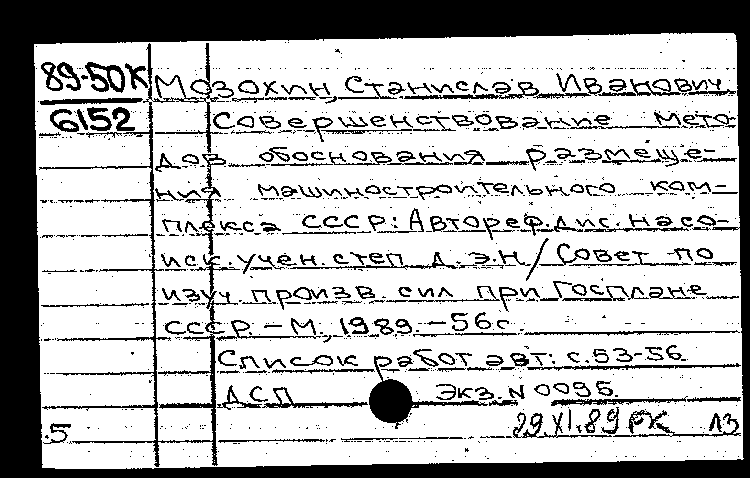 89-50К Мозохин, Станислав Иванович.
6152 Совершенствование мето-
дов обоснования размеще-
ния машиностроительного ком-
плекса СССР: Автореф. дис. на со-
иск. учен. степ д. э.н. / Совет по
изуч. произв. сил при Госплане
СССР. – М., 1989. – 56с.
Список работ авт: с. 53-56
ДСП Экз. N 0095.
5 29.XI.89 РК ЛЗ